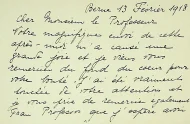 Berne 13 Février 1918
Cher Monsieur le Professeur
Votre magnifique envoi de cette
après-midi m'a causé une
grande joie et je veux vous
remercier du fond du coeur pour
votre bonté. J'ai été vraiment
touchée de votre attention et
je vous prie de remercier également
Frau Professor que j'espère avoir